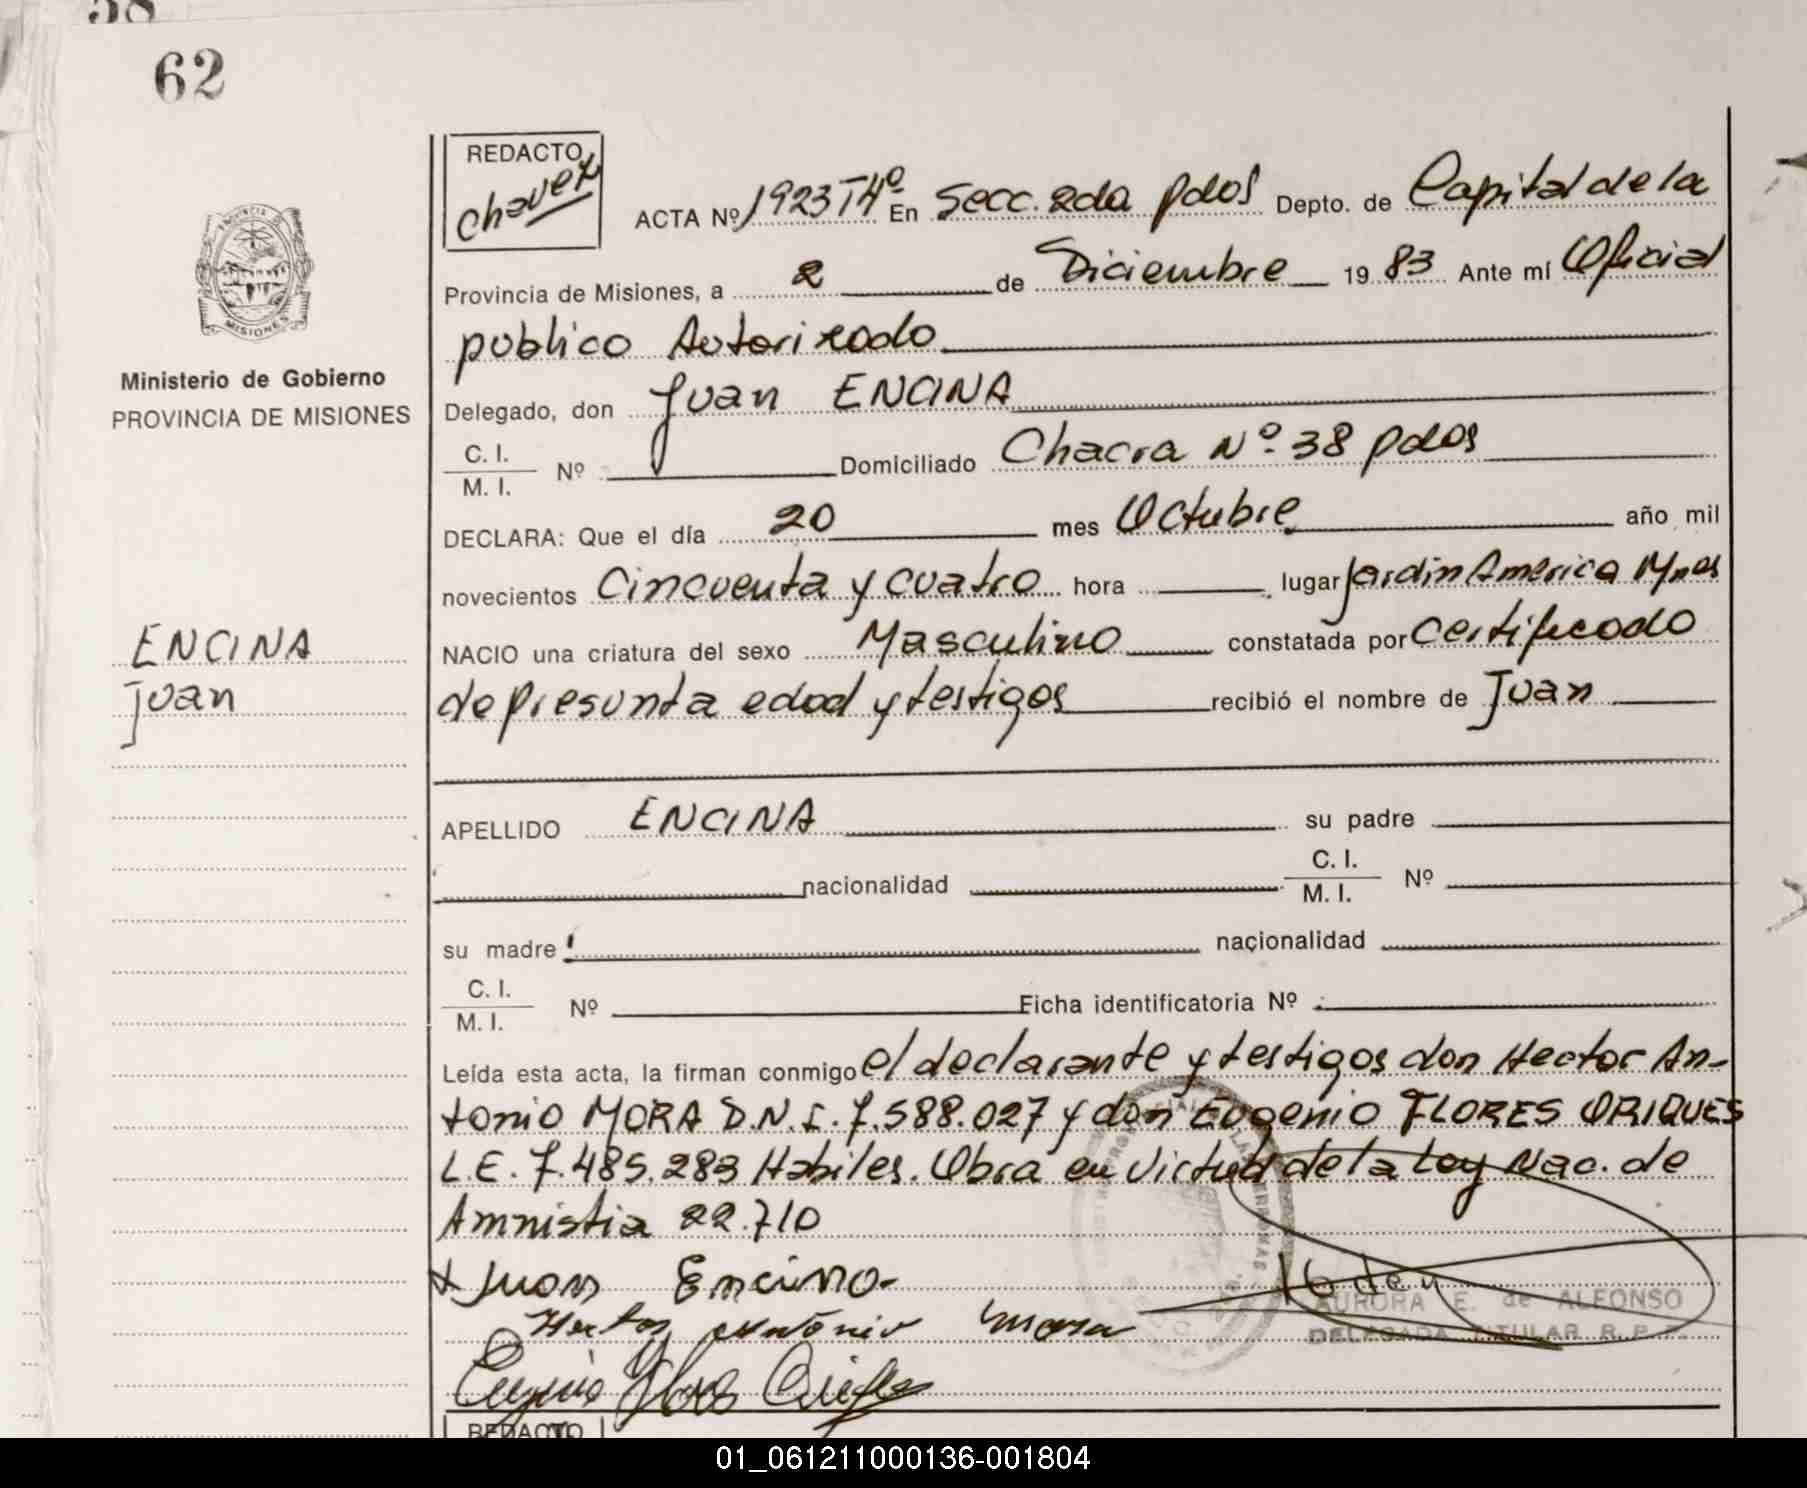 62
REDACTO
Chavez
ACTA Nº 1923 Tº4º En Secc. 2da pdas Depto. de Capital de la
Provincia de Misiones, a 2 de Diciembre 19 83 Ante mí Oficial
publico Autorizado
PROVINCIA DE
MISIONES
Ministerio de Gobierno
PROVINCIA DE MISIONES
Delegado, don Juan ENCINA
C. I.
M. I. Nº Domiciliado Chacra Nº 38 pdas
DECLARA: Que el día 20 mes Octubre año mil
novecientos Cincuenta y cuatro hora lugar Jardin America Mnes
ENCINA
Juan
NACIO una criatura del sexo Masculino constatada por Certificado
de presunta edad y testigos recibió el nombre de Juan
APELLIDO ENCINA su padre
nacionalidad C. I.
M. I. Nº
su madre nacionalidad
C. I.
M. I. Nº Ficha identificatoria Nº
Leída esta acta, la firman conmigo el declarante y testigos don Hector An-
tonio MORA D.N.I. 7.588.027 y don Eugenio FLORES ORIQUES
L.E. 7.485.283 Habiles. Obra en Virtud de la Ley Nac. de
Amnistia 22.710
Juan Encina
Hector Antonio Mora
AURORA E. de ALFONSO
DELEGADA TITULAR R. P.
Eugenio Flores
REDACTO
01_061211000136-001804